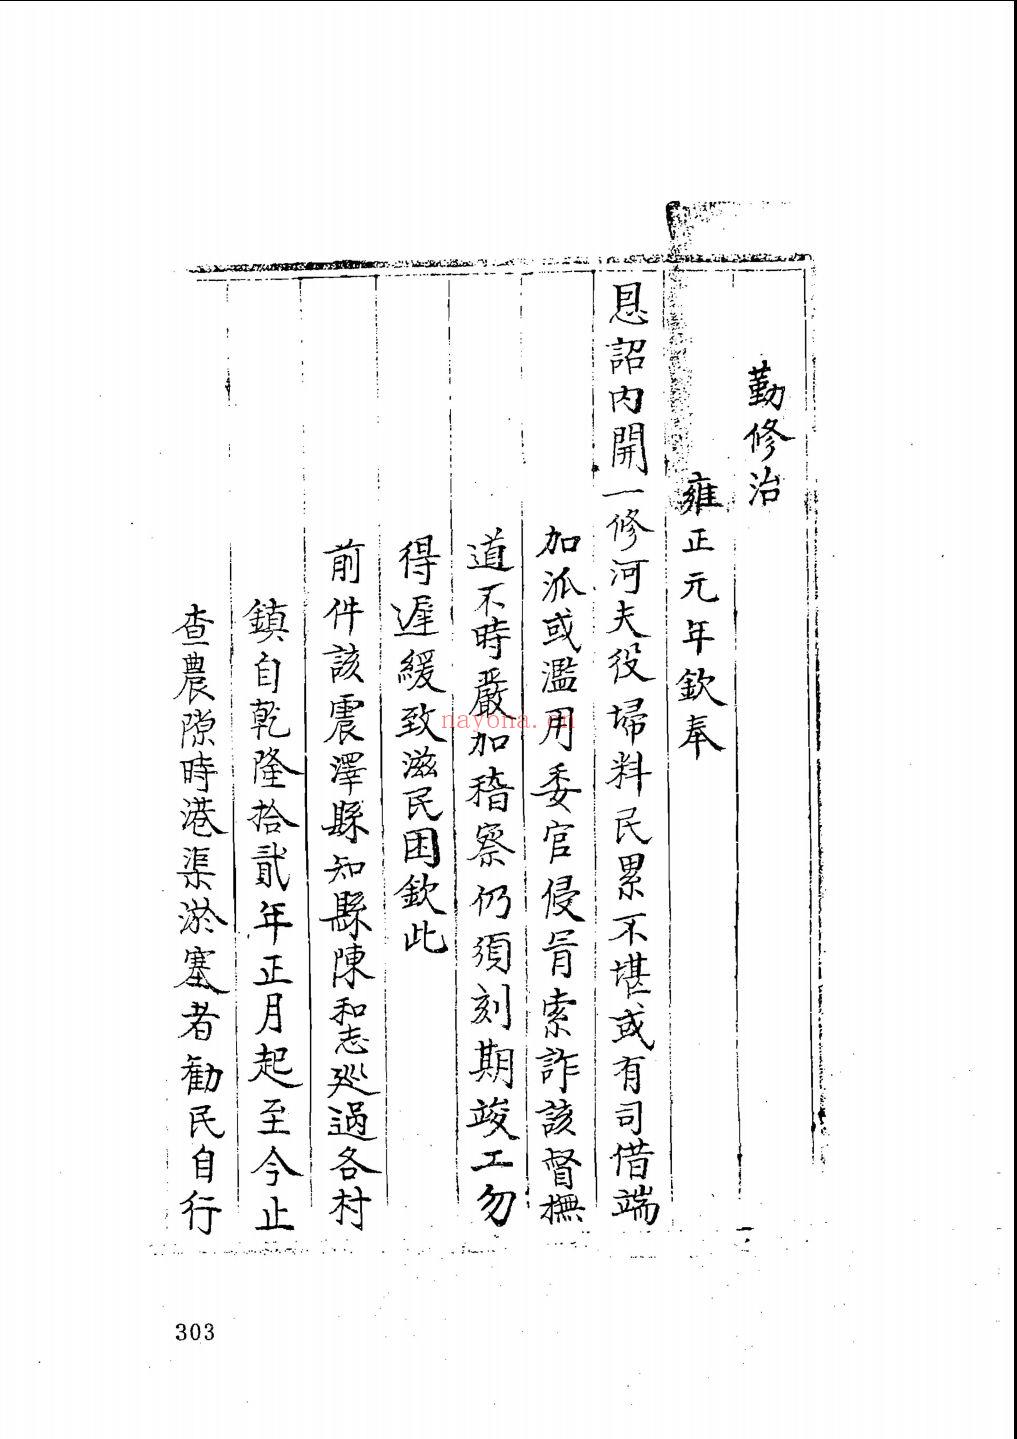 勤修治
雍正元年欽奉
恩詔内開一修河夫役埽料民累不堪或有司借端
加派或濫用委官侵肯索詐該督撫
道不時嚴加稽察仍須刻期竣工勿
得遲緩致滋民困欽此
前件該震澤縣知縣陳和志巡過各村
鎮自乾隆拾貳年正月起至今止
查農隙時港渠淤塞者勸民自行
nayona.cn
303